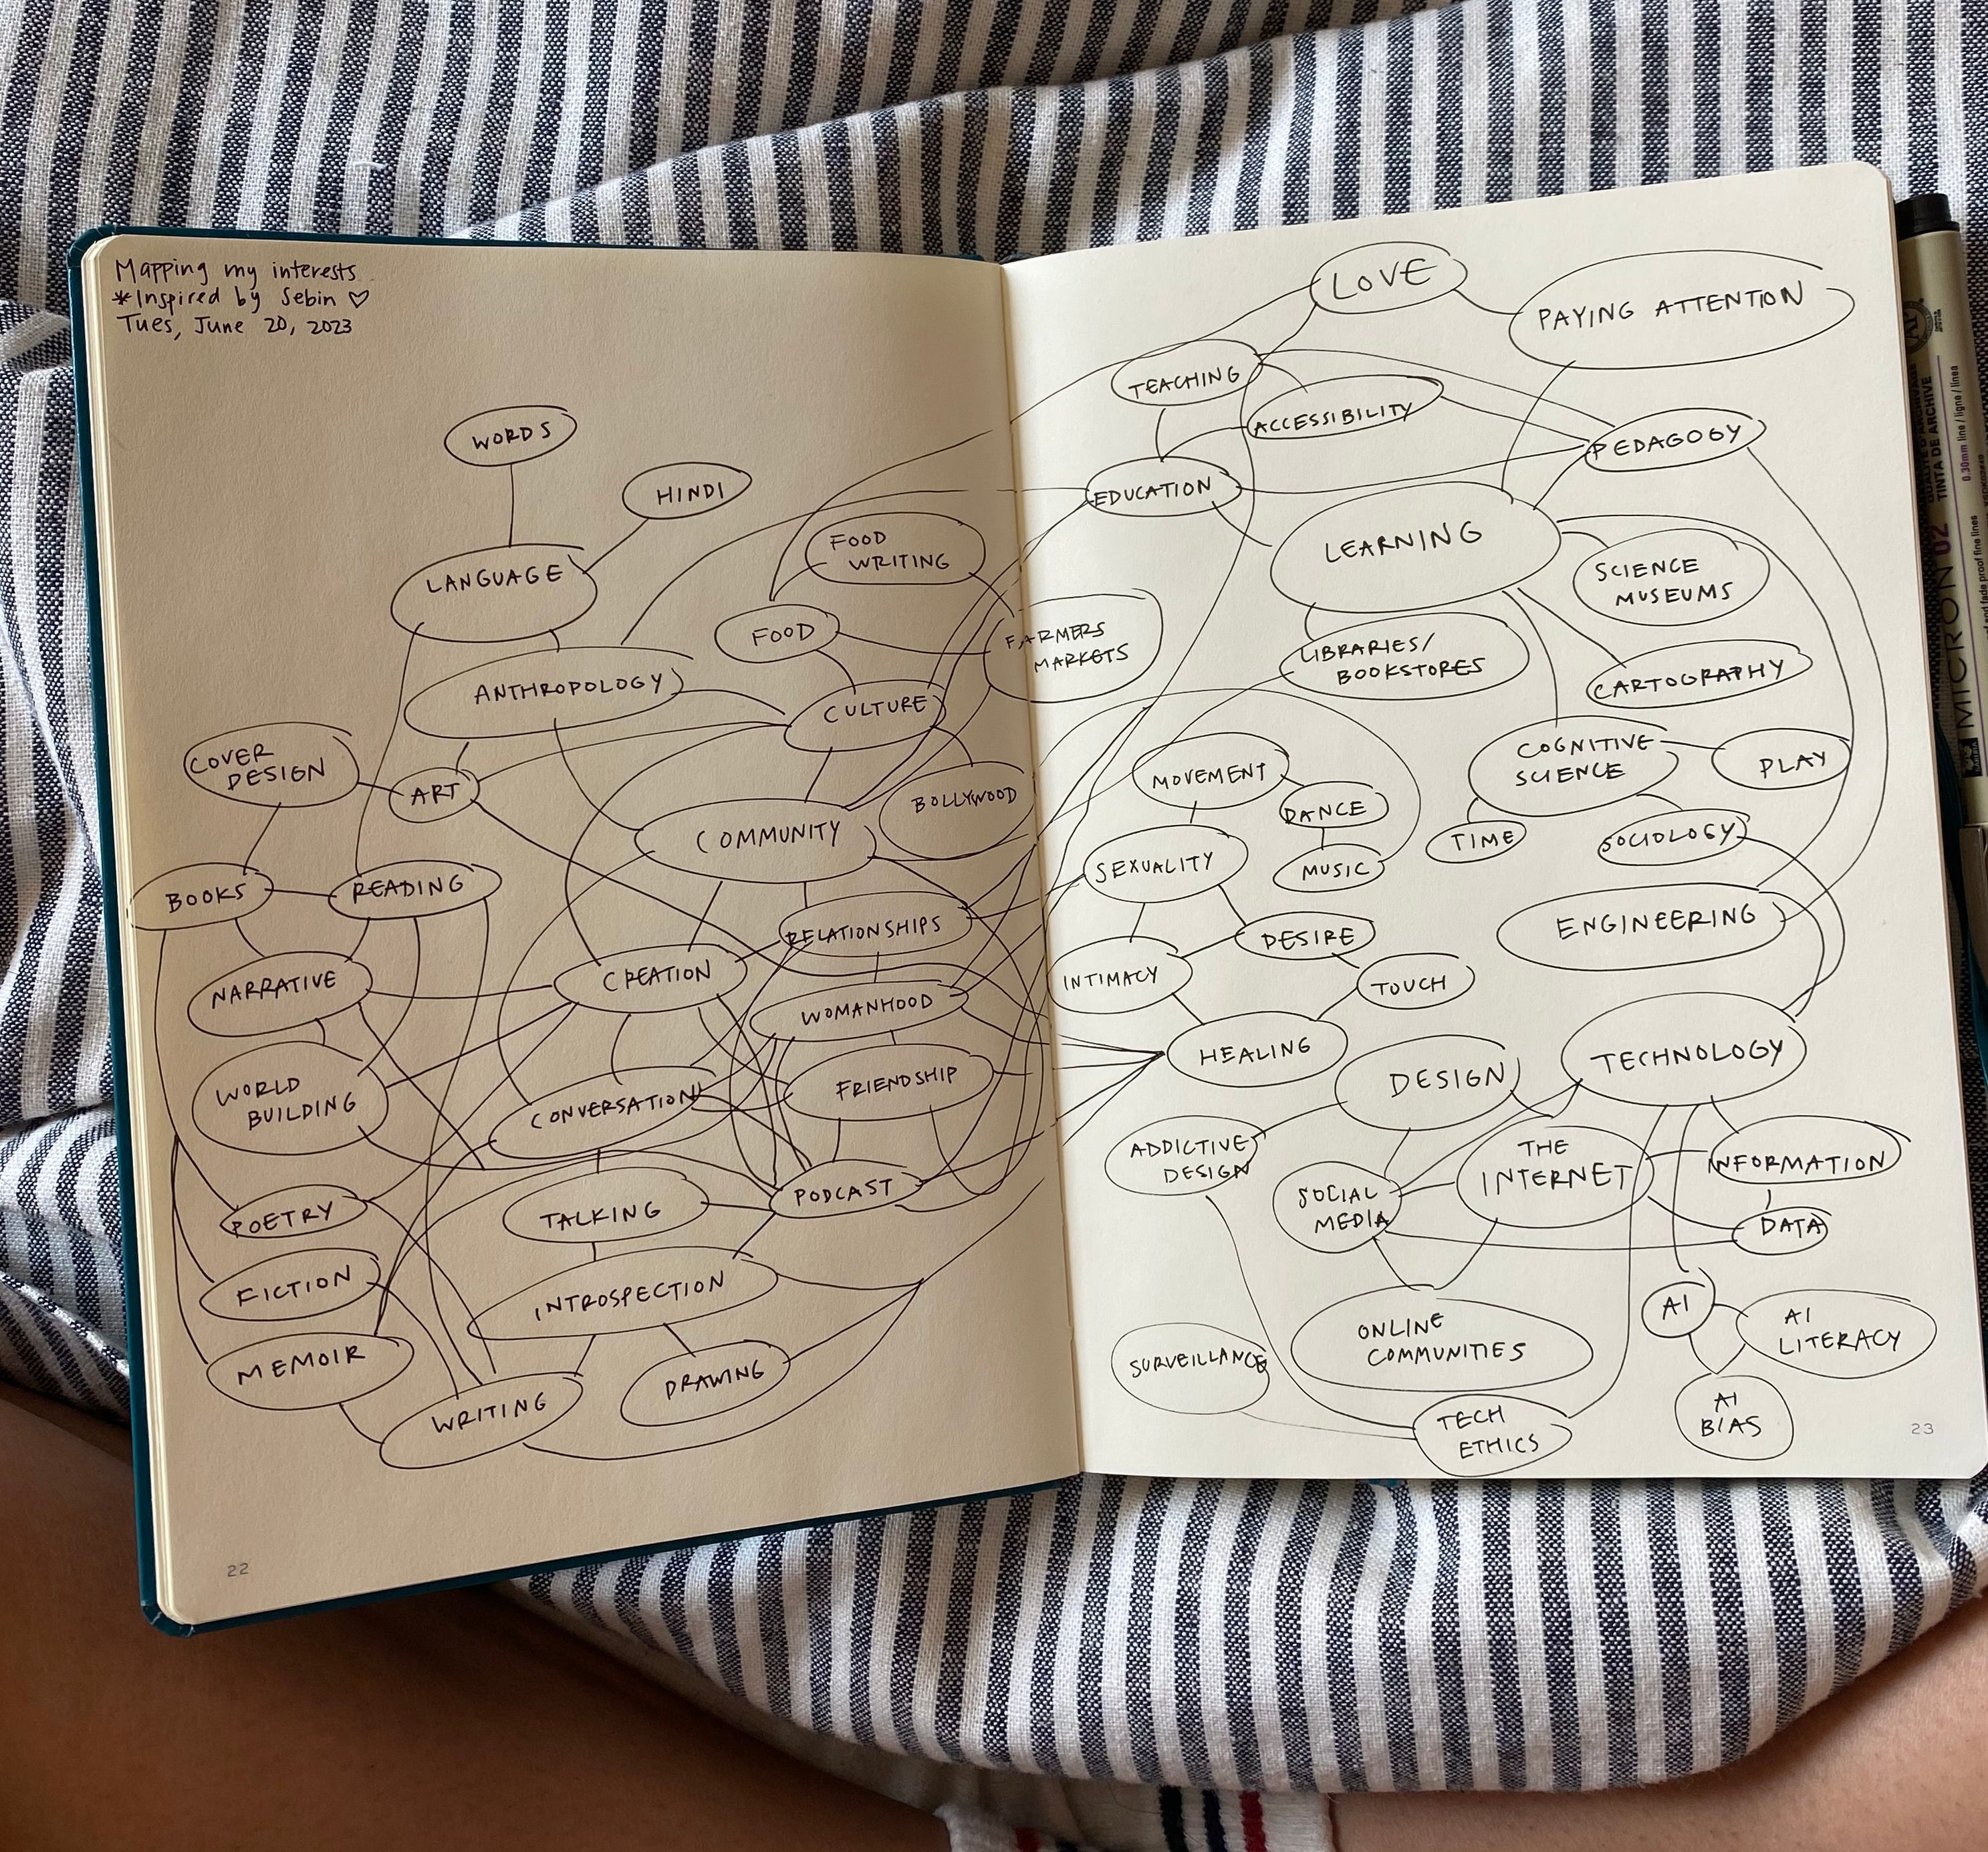 Mapping my interests
*Inspired by Sebin ♡
Tues, June 20, 2023
WORDS
HINDI
LANGUAGE
FOOD
WRITING
FOOD
ANTHROPOLOGY
CULTURE
COVER
DESIGN
ART
BOLLYWOOD
COMMUNITY
BOOKS
READING
RELATIONSHIPS
NARRATIVE
CREATION
WOMANHOOD
WORLD
BUILDING
CONVERSATION
FRIENDSHIP
POETRY
TALKING
PODCAST
FICTION
INTROSPECTION
MEMOIR
DRAWING
WRITING
22
LOVE
PAYING ATTENTION
TEACHING
ACCESSIBILITY
PEDAGOGY
EDUCATION
LEARNING
SCIENCE
MUSEUMS
FARMERS
MARKETS
LIBRARIES/
BOOKSTORES
CARTOGRAPHY
MOVEMENT
COGNITIVE
SCIENCE
PLAY
DANCE
TIME
SOCIOLOGY
SEXUALITY
MUSIC
ENGINEERING
DESIRE
INTIMACY
TOUCH
HEALING
DESIGN
TECHNOLOGY
ADDICTIVE
DESIGN
THE
INTERNET
INFORMATION
SOCIAL
MEDIA
DATA
AI
AI
LITERACY
ONLINE
COMMUNITIES
SURVEILLANCE
AI
BIAS
TECH
ETHICS
23
MICRON 02
TINTA DE ARCHIVE
0.30mm line / ligne / línea